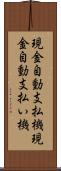 現金自動支払機現
金自動支払い機